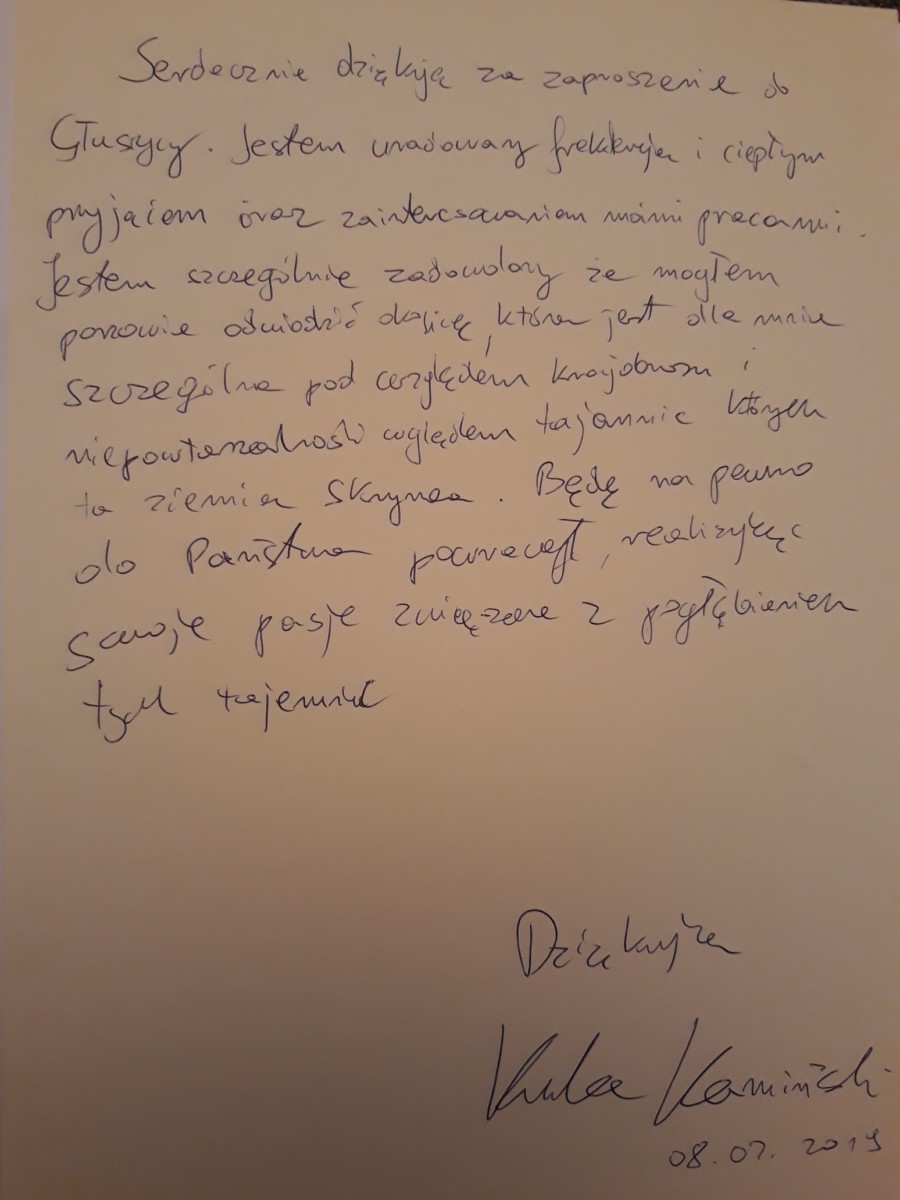 Serdecznie dziękuję za zaproszenie do
Głuszycy. Jestem uradowany frekwencją i ciepłym
przyjęciem oraz zainteresowaniem moimi pracami.
Jestem szczególnie zadowolony że mogłem
ponownie odwiedzić okolicę, która jest dla mnie
szczególna pod względem krajobrazu i
względem tajemnic których
ta ziemia skrywa. Będę na pewno
do Państwa powracał, realizując
swoje pasje związane z pogłębieniem
tych tajemnic
Dziękuję
Kuba Kamiński
2019